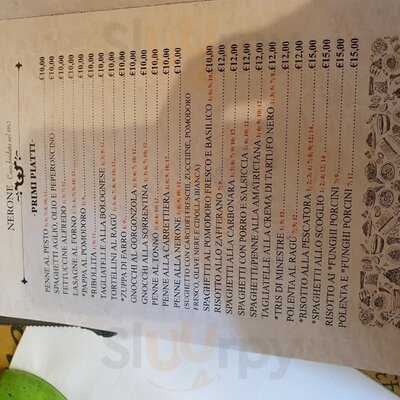 NERONE Casa fondata nel 1957
PRIMI PIATTI-
PENNE AL PESTO €10,00
SPAGHETTI AGLIO, OLIO E PEPERONCINO €10,00
FETTUCCINE ALFREDO €10,00
LASAGNA AL FORNO €10,00
*PAPPA AL POMODORO €10,00
*RIBOLLITA €10,00
TAGLIATELLE ALLA BOLOGNESE €10,00
TORTELLINI AL RAGÙ €10,00
*ZUPPA DI FARRO €10,00
GNOCCHI AL GORGONZOLA €10,00
GNOCCHI ALLA SORRENTINA €10,00
PENNE AL TONNO €10,00
PENNE ALLA CARRETTIERA €10,00
PENNE ALLA NERONE €10,00
(SUGHETTO CON CARCIOFI FRESCHI, ZUCCHINE, POMODORO
FRESCO, OLIVE NERE E CIPOLLA BIANCA)
SPAGHETTI AL POMODORO FRESCO E BASILICO €10,00
RISOTTO ALLO ZAFFERANO €12,00
SPAGHETTI ALLA CARBONARA €12,00
SPAGHETTI CON PORRO E SALSICCIA €12,00
SPAGHETTI/PENNE ALLA AMATRICIANA €12,00
TAGLIATELLE ALLA CREMA DI TARTUFO NERO €12,00
*TRIS DI MINESTRE €12,00
POLENTA AL RAGÙ €12,00
*RISOTTO ALLA PESCATORA €15,00
*SPAGHETTI ALLO SCOGLIO €15,00
RISOTTO AI *FUNGHI PORCINI €15,00
POLENTA E *FUNGHI PORCINI €15,00
Sluurpy